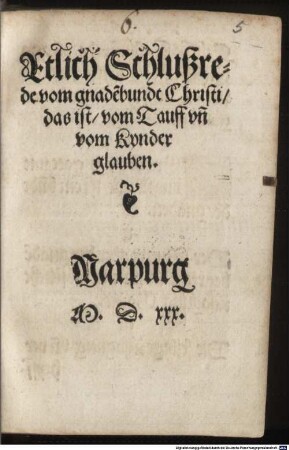 6. 5
Etlich Schlußre-
de vom gnadēbundt Christi/
das ist/ vom Tauff vñ
vom Kynder
glauben.
Marpurg
M. D. xxx.